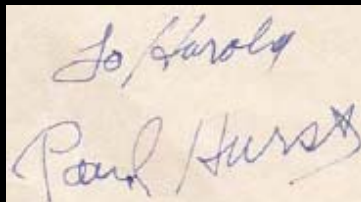 To Harold
Paul Hurst